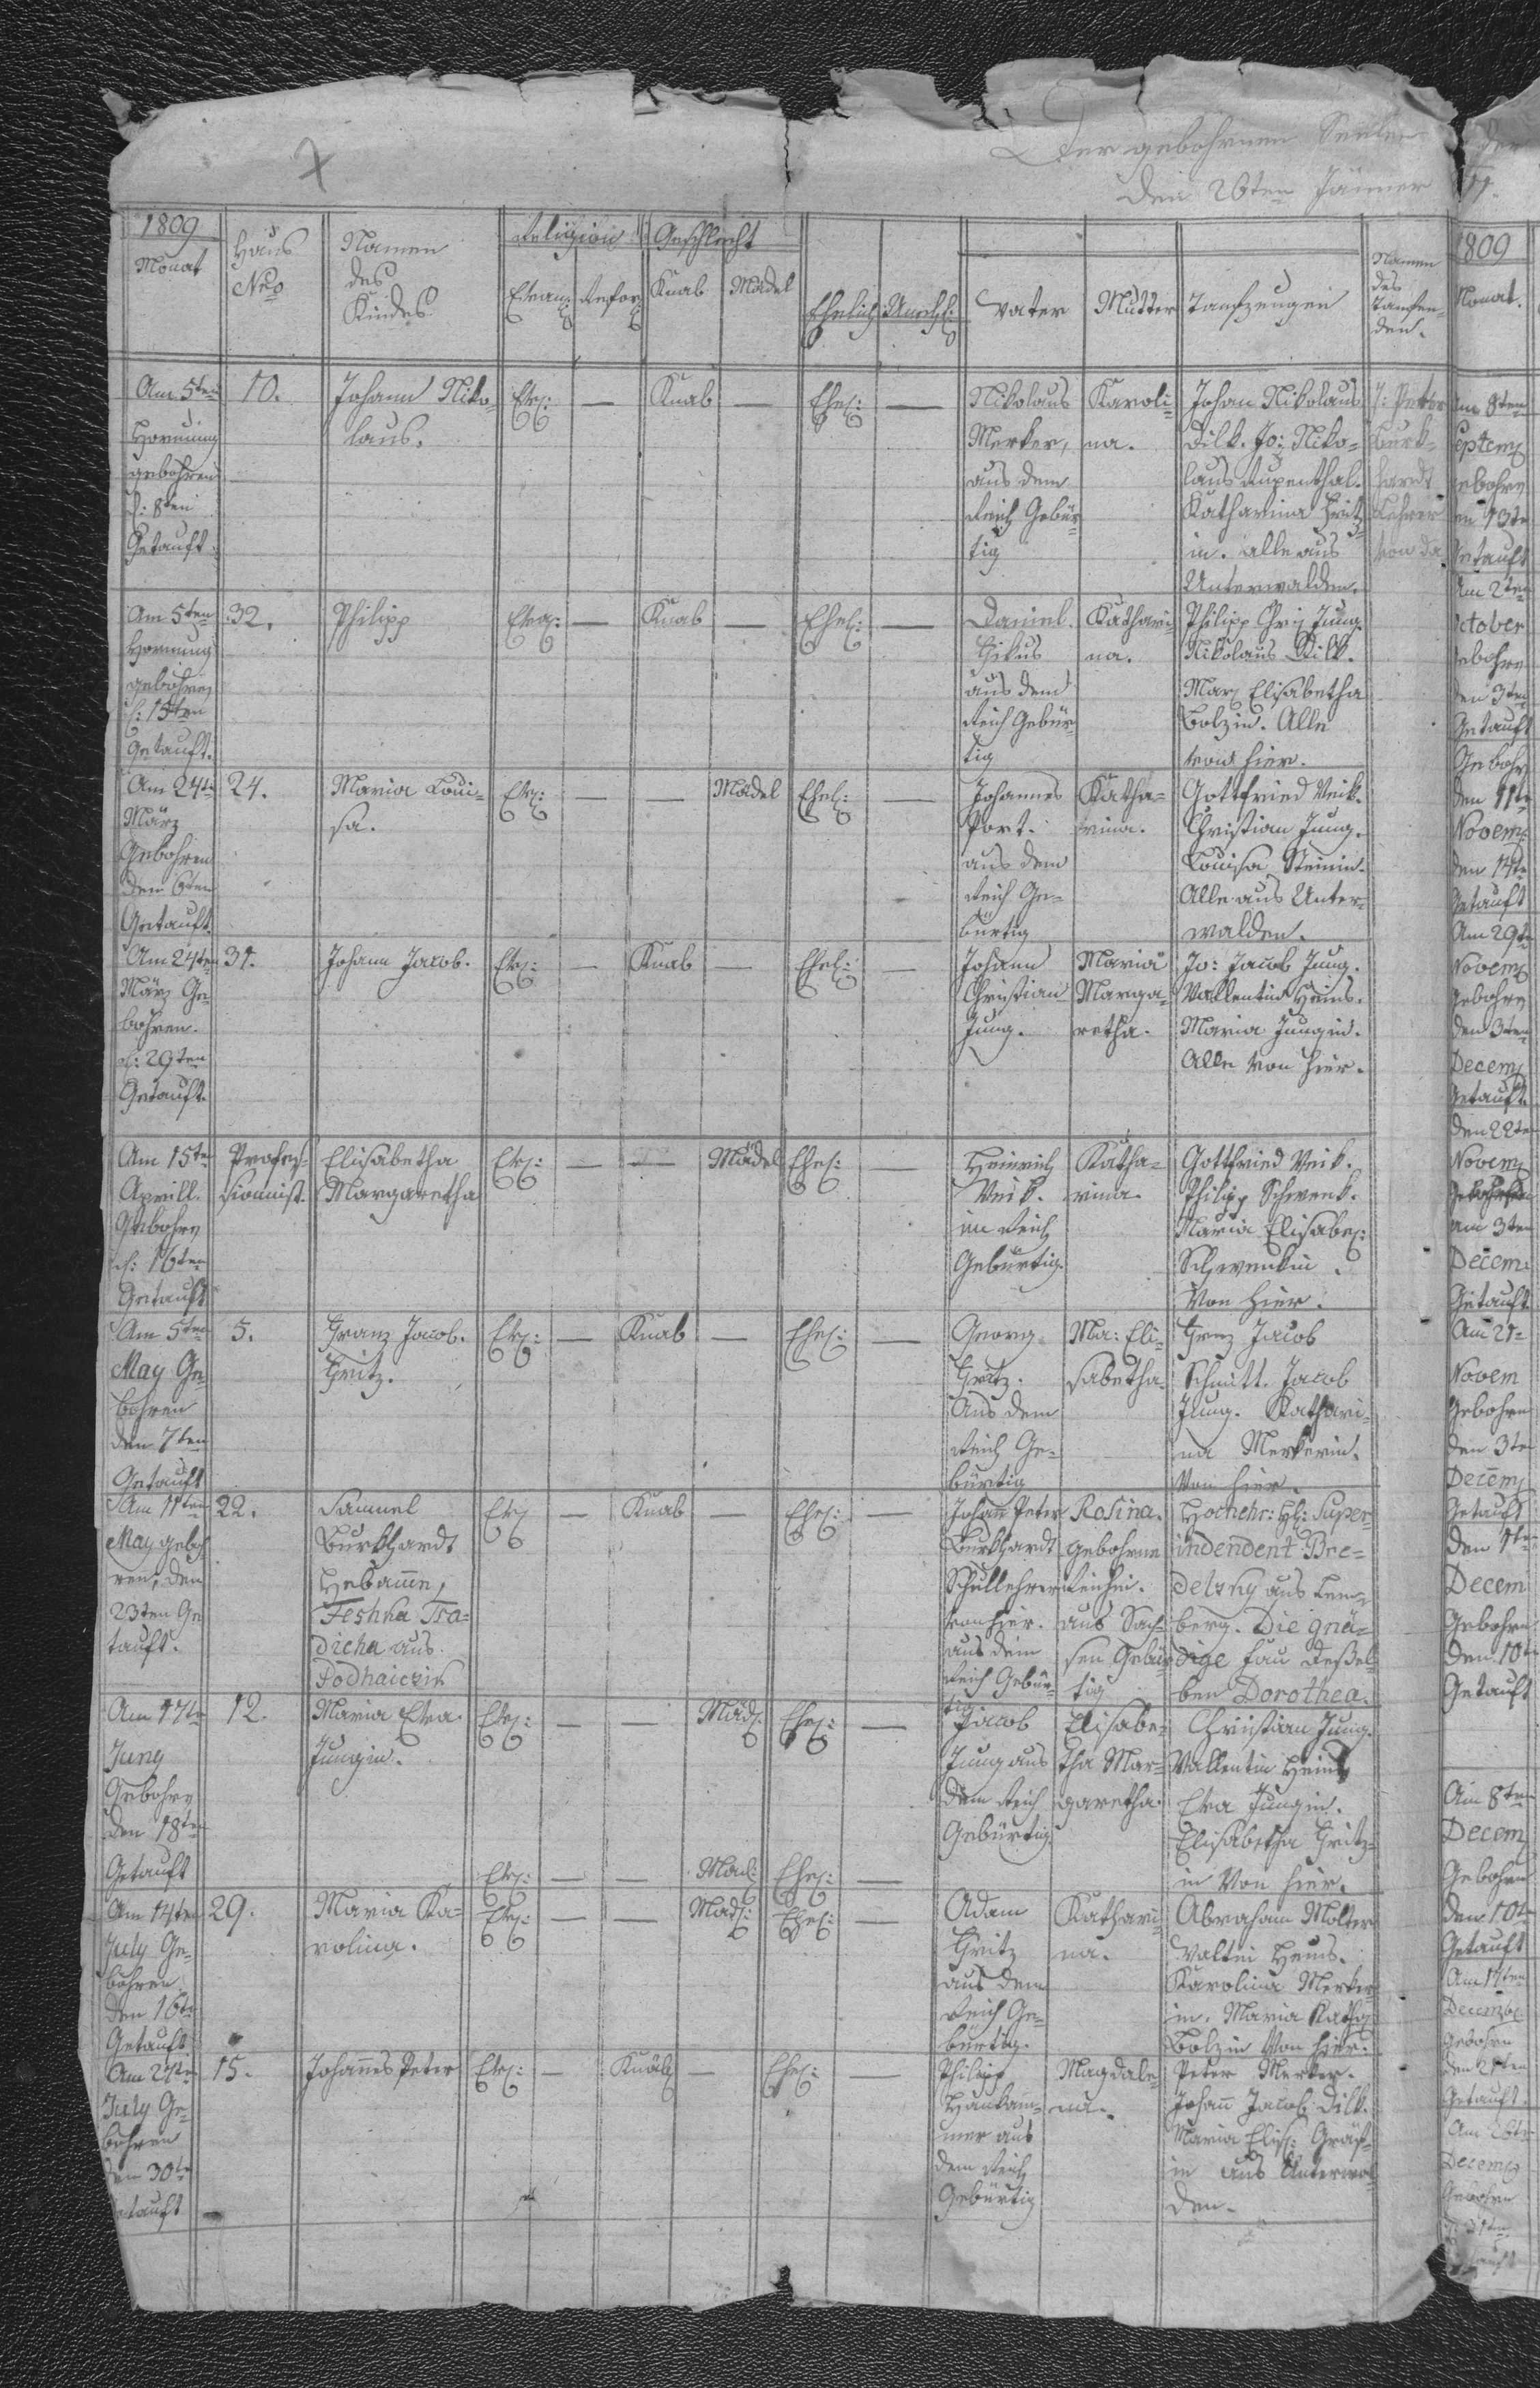 Der gebohrnen Seelen
den 26ten Jänner
1809
Monat
Haus Nro
Namen des Kindes
Religion
Evang: Refor:
Geschlecht
Knab Mädel
Ehelich Unehl:
Vater
Mutter
Taufzeugen
Namen des Taufenden.
Am 5ten
Hornung
gebohren
d: 8ten
Getauft.
10.
Johann Niko-
laus.
Ev: — Knab — Ehel: —
Nikolaus
Merker,
aus dem
Reich Gebür-
tig
Karoli-
na.
Johan Nikolaus
Dilk. Jo: Niko-
laus Rupenthal.
Katharina Fritz-
in. alle aus
Unterwalden.
J: Petter
Burk-
hardt
Lehrer
von da
Am 5ten
Hornung
gebohren
d: 15ten
Getauft.
32.
Philipp
Eva: — Knab — Ehel: —
Daniel
aus dem
Reich Gebür-
tig
Kathari-
na.
Philipp Chri Jung.
Nikolaus Dilk.
Mar: Elisabetha
Bolzin. Alle
von hier.
Am 24te
März
Gebohren
den 6ten
Getauft.
24.
Maria Loui-
sa.
Ev: — — Mädel Ehel: —
Johannes
Port.
aus dem
Reich Ge-
bürtig
Katha-
rina.
Gottfried Veik.
Christian Jung.
Louisa Steinin.
Alle aus Unter-
walden.
Am 24ten
März Ge-
bohren.
d: 29ten
Getauft.
31.
Johann Jacob.
Ev: — Knab — Ehel: —
Johann
Christian
Jung.
Maria
Marga-
retha.
Jo: Jacob Jung.
Vallentin Heins.
Maria Jungin.
Alle von hier.
Am 15te
Aprill.
Gebohren
d: 16ten
Getauft
Profes-
sionist.
Elisabetha
Margaretha
Ev: — — Mädel Ehel: —
Heinrich
Veik.
im Reich
Gebürtig.
Katha-
rina.
Gottfried Veik.
Philipp Schwenk.
Maria Elisabe:
Schwenkin.
Von hier.
Am 5ten
May Ge-
bohren
den 7ten
Getauft
5.
Franz Jacob.
Fritz.
Ev: — Knab — Ehel: —
Georg
Fritz.
Aus dem
Reich Ge-
bürtig
Ma: Eli-
sabetha.
Franz Jacob
Schmitt. Jacob
Jung. Kathari-
na Merkerin.
Von hier.
Am 11ten
May geboh-
ren, den
23ten Ge
tauft.
22.
Samuel
Burkhardt
Hebamme,
Feshka Tra-
dicha aus
Podhaiczik
Ev: — Knab — Ehel: —
Johann Peter
Burkhardt
Schullehrer
von hier.
aus dem
Reich Gebür-
tig
Rosina.
gebohrne
aus Sach-
sen Gebür
tig
Hochehr: H: Super-
indendent Bre-
detzky aus Lem-
berg. Die gnä-
dige Frau deßel-
ben Dorothea.
Am 17te
Juny
Gebohren
den 18te
Getauft
12.
Maria Eva
Jungin.
Ev: — — Mäd: Ehel: —
Jacob
Jung aus
dem Reich
Gebürtig
Elisabe-
tha Mar-
garetha.
Christian Jung.
Vallentin Heins
Eva Jungin.
Elisabetha Fritz-
in Von hier.
Ev: — — Mad: Ehel: —
Am 14ten
July Ge-
bohren
den 16te
Getauft
29.
Maria Ka-
rolina.
Ev: — — Mad: Ehel: —
Adam
Fritz
aus dem
Reich Ge-
bürtig.
Kathari-
na.
Abraham Molter
Valtin Heins.
Karolina Merker-
in. Maria Katha
Bolzin Von hier.
Am 27te
July Ge-
bohren
den 30te
Getauft
15.
Johannes Peter
Ev: — Knab — Ehel: —
Philipp
aus
dem Reich
Gebürtig
Magdale-
na.
Peter Merker.
Johann Jacob Dilk.
Maria Elis: Gräf-
in aus Unterwal
den.
1809
Monat.
Am 8ten
Septem
Gebohren
den 13te
Getauft
Am 2ten
October
Gebohren
den 3ten
Getauft
Gebohr
den 11te
Novem
den 14te
Getauft
Am 29te
Novem
Gebohren
den 3ten
Decem
Getauft.
den 22ten
Novem
Gebohren
am 3ten
Decem
Getauft
Am 21
Novem
Gebohren
den 3te
Decem
Getauft
den 1te
Decem
Gebohren
den 10t
Getauft
Am 8ten
Decem
Gebohren
den 10t
Getauft
Am 17ten
Decembe
Gebohren
den 21ten
Getauft.
Am 26te
Decem
Gebohren
d: 31ten